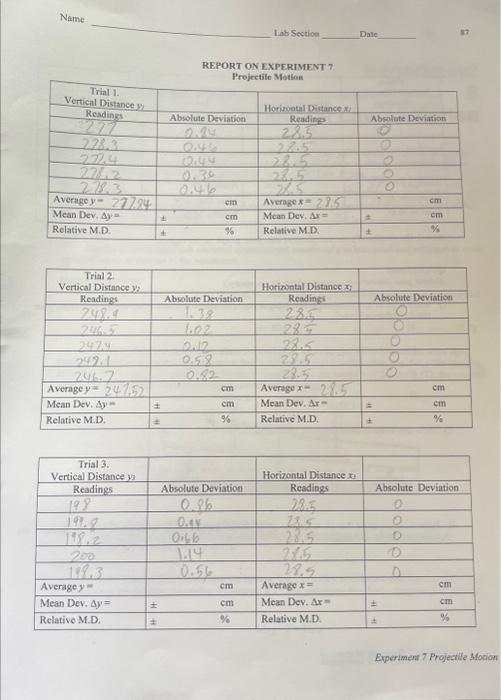 Name
Lab Section Date 87
REPORT ON EXPERIMENT 7
Projectile Motion
Trial 1.
Vertical Distance y₁ Horizontal Distance x₁
Readings Absolute Deviation Readings Absolute Deviation
277 28.5 0
278.3 0.46 28.5 0
277.4 0.44 28.5 0
278.2 0.36 28.5 0
278.3 0.46 28.5 0
Average y = 277.84 cm Average x = 28.5 cm
Mean Dev. Δy = ± cm Mean Dev. Δx = ± cm
Relative M.D. ± % Relative M.D. ± %
Trial 2.
Vertical Distance y₂ Horizontal Distance x₂
Readings Absolute Deviation Readings Absolute Deviation
248.9 1.38 28.5 0
246.5 1.02 28.5 0
247.4 0.12 28.5 0
248.1 0.58 28.5 0
246.7 0.82 28.5 0
Average y = 247.52 cm Average x = 28.5 cm
Mean Dev. Δy = ± cm Mean Dev. Δx = ± cm
Relative M.D. ± % Relative M.D. ± %
Trial 3.
Vertical Distance y₃ Horizontal Distance x₃
Readings Absolute Deviation Readings Absolute Deviation
198 0.86 28.5 0
28.5 0
198.2 0.66 28.5 0
200 1.14 28.5 0
198.3 0.56 28.5 0
Average y = cm Average x = cm
Mean Dev. Δy = ± cm Mean Dev. Δx = ± cm
Relative M.D. ± % Relative M.D. ± %
Experiment 7 Projectile Motion